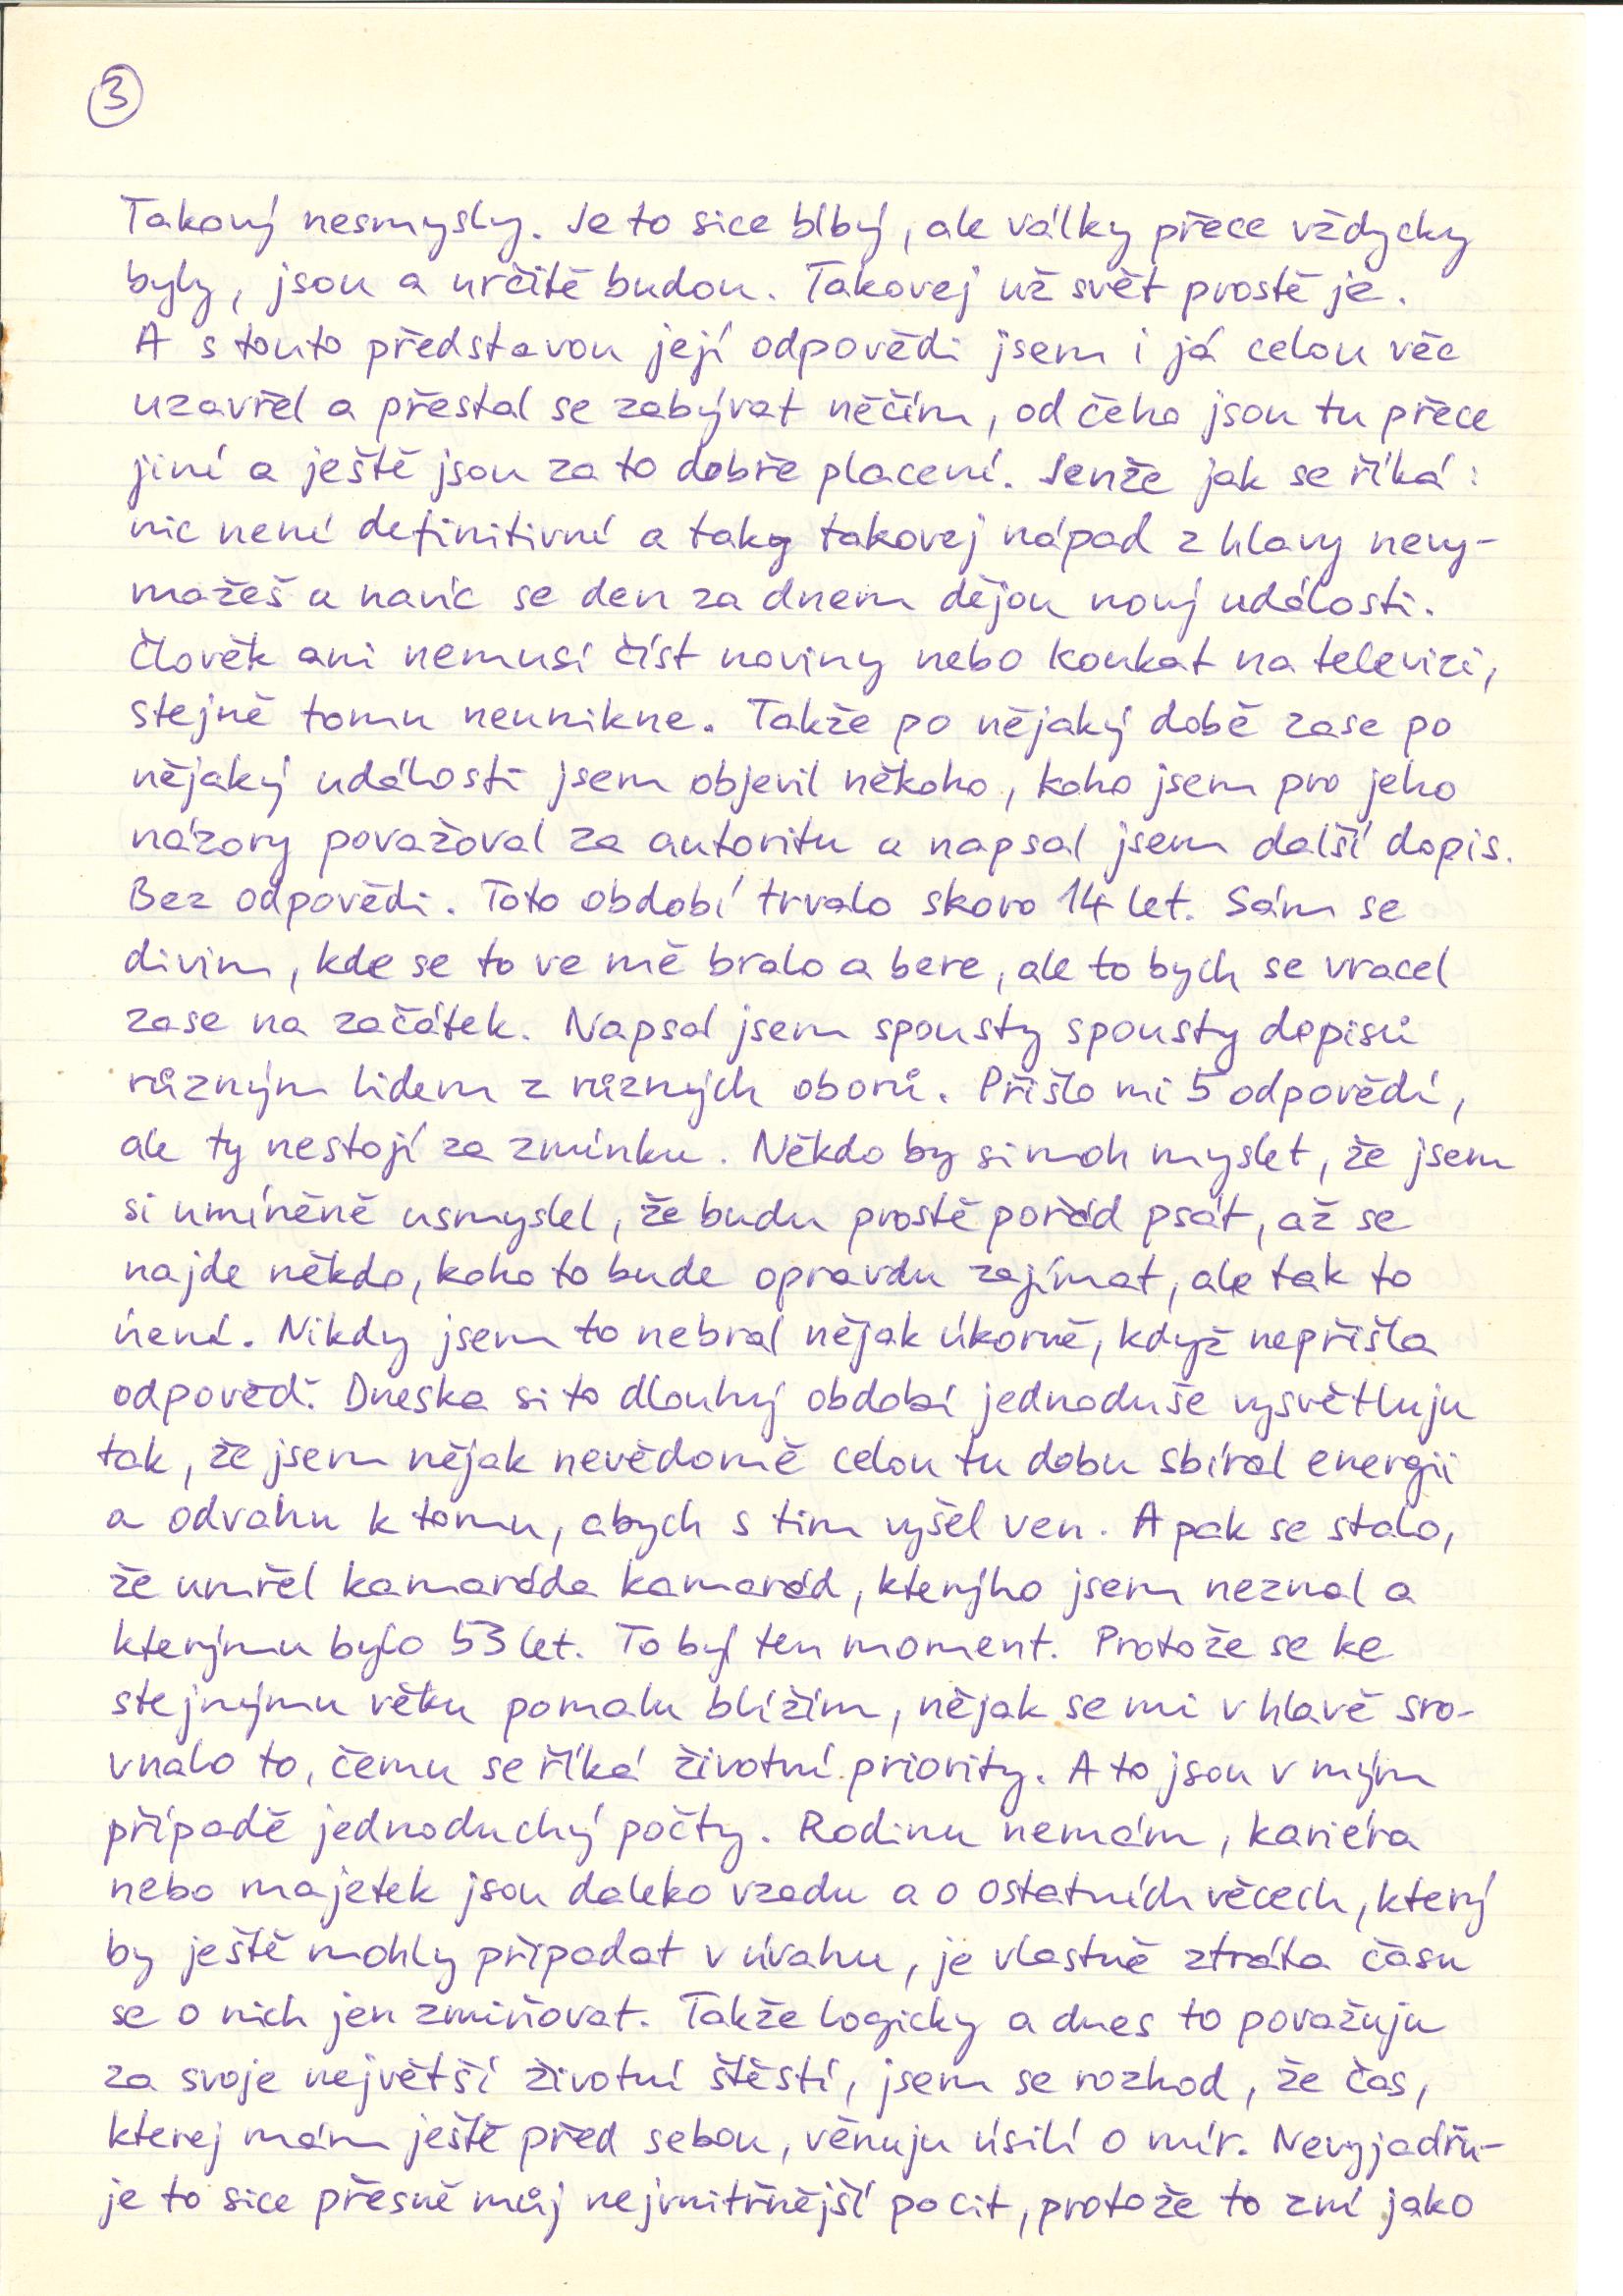 3
Takový nesmysly. Je to sice blbý, ale války přece vždycky
byly, jsou a určitě budou. Takovej už svět prostě je.
A s touto představou její odpovědi jsem i já celou věc
uzavřel a přestal se zabývat něčím, od čeho jsou tu přece
jiní a ještě jsou za to dobře placení. Jenže jak se říká:
nic není definitivní a taky takovej nápad z hlavy nevy-
mažeš a navíc se den za dnem dějou nový události.
Člověk ani nemusí číst noviny nebo koukat na televizi,
stejně tomu neunikne. Takže po nějaký době zase po
nějaký události jsem objevil někoho, koho jsem pro jeho
názory považoval za autoritu a napsal jsem další dopis.
Bez odpovědi. Toto období trvalo skoro 14 let. Sám se
divim, kde se to ve mě bralo a bere, ale to bych se vracel
zase na začátek. Napsal jsem spousty spousty dopisů
různým lidem z různých oborů. Přišlo mi 5 odpovědí,
ale ty nestojí za zmínku. Někdo by si moh myslet, že jsem
si umíněně usmyslel, že budu prostě pořád psát, až se
najde někdo, koho to bude opravdu zajímat, ale tak to
není. Nikdy jsem to nebral nějak úkorně, když nepřišla
odpověď. Dneska si to dlouhý období jednoduše vysvětluju
tak, že jsem nějak nevědomě celou tu dobu sbíral energii
a odvahu k tomu, abych s tim vyšel ven. A pak se stalo,
že umřel kamaráda kamarád, kterýho jsem neznal a
kterýmu bylo 53 let. To byl ten moment. Protože se ke
stejnýmu věku pomalu blížím, nějak se mi v hlavě sro-
vnalo to, čemu se říká životní priority. A to jsou v mým
případě jednoduchý počty. Rodinu nemám, kariéra
nebo majetek jsou daleko vzadu a o ostatních věcech, který
by ještě mohly připadat v úvahu, je vlastně ztráta času
se o nich jen zmiňovat. Takže logicky a dnes to považuju
za svoje největší životní štěstí, jsem se rozhod, že čas,
kterej mám ještě před sebou, věnuju úsilí o mír. Nevyjadřu-
je to sice přesně můj nejvnitřnější pocit, protože to zní jako